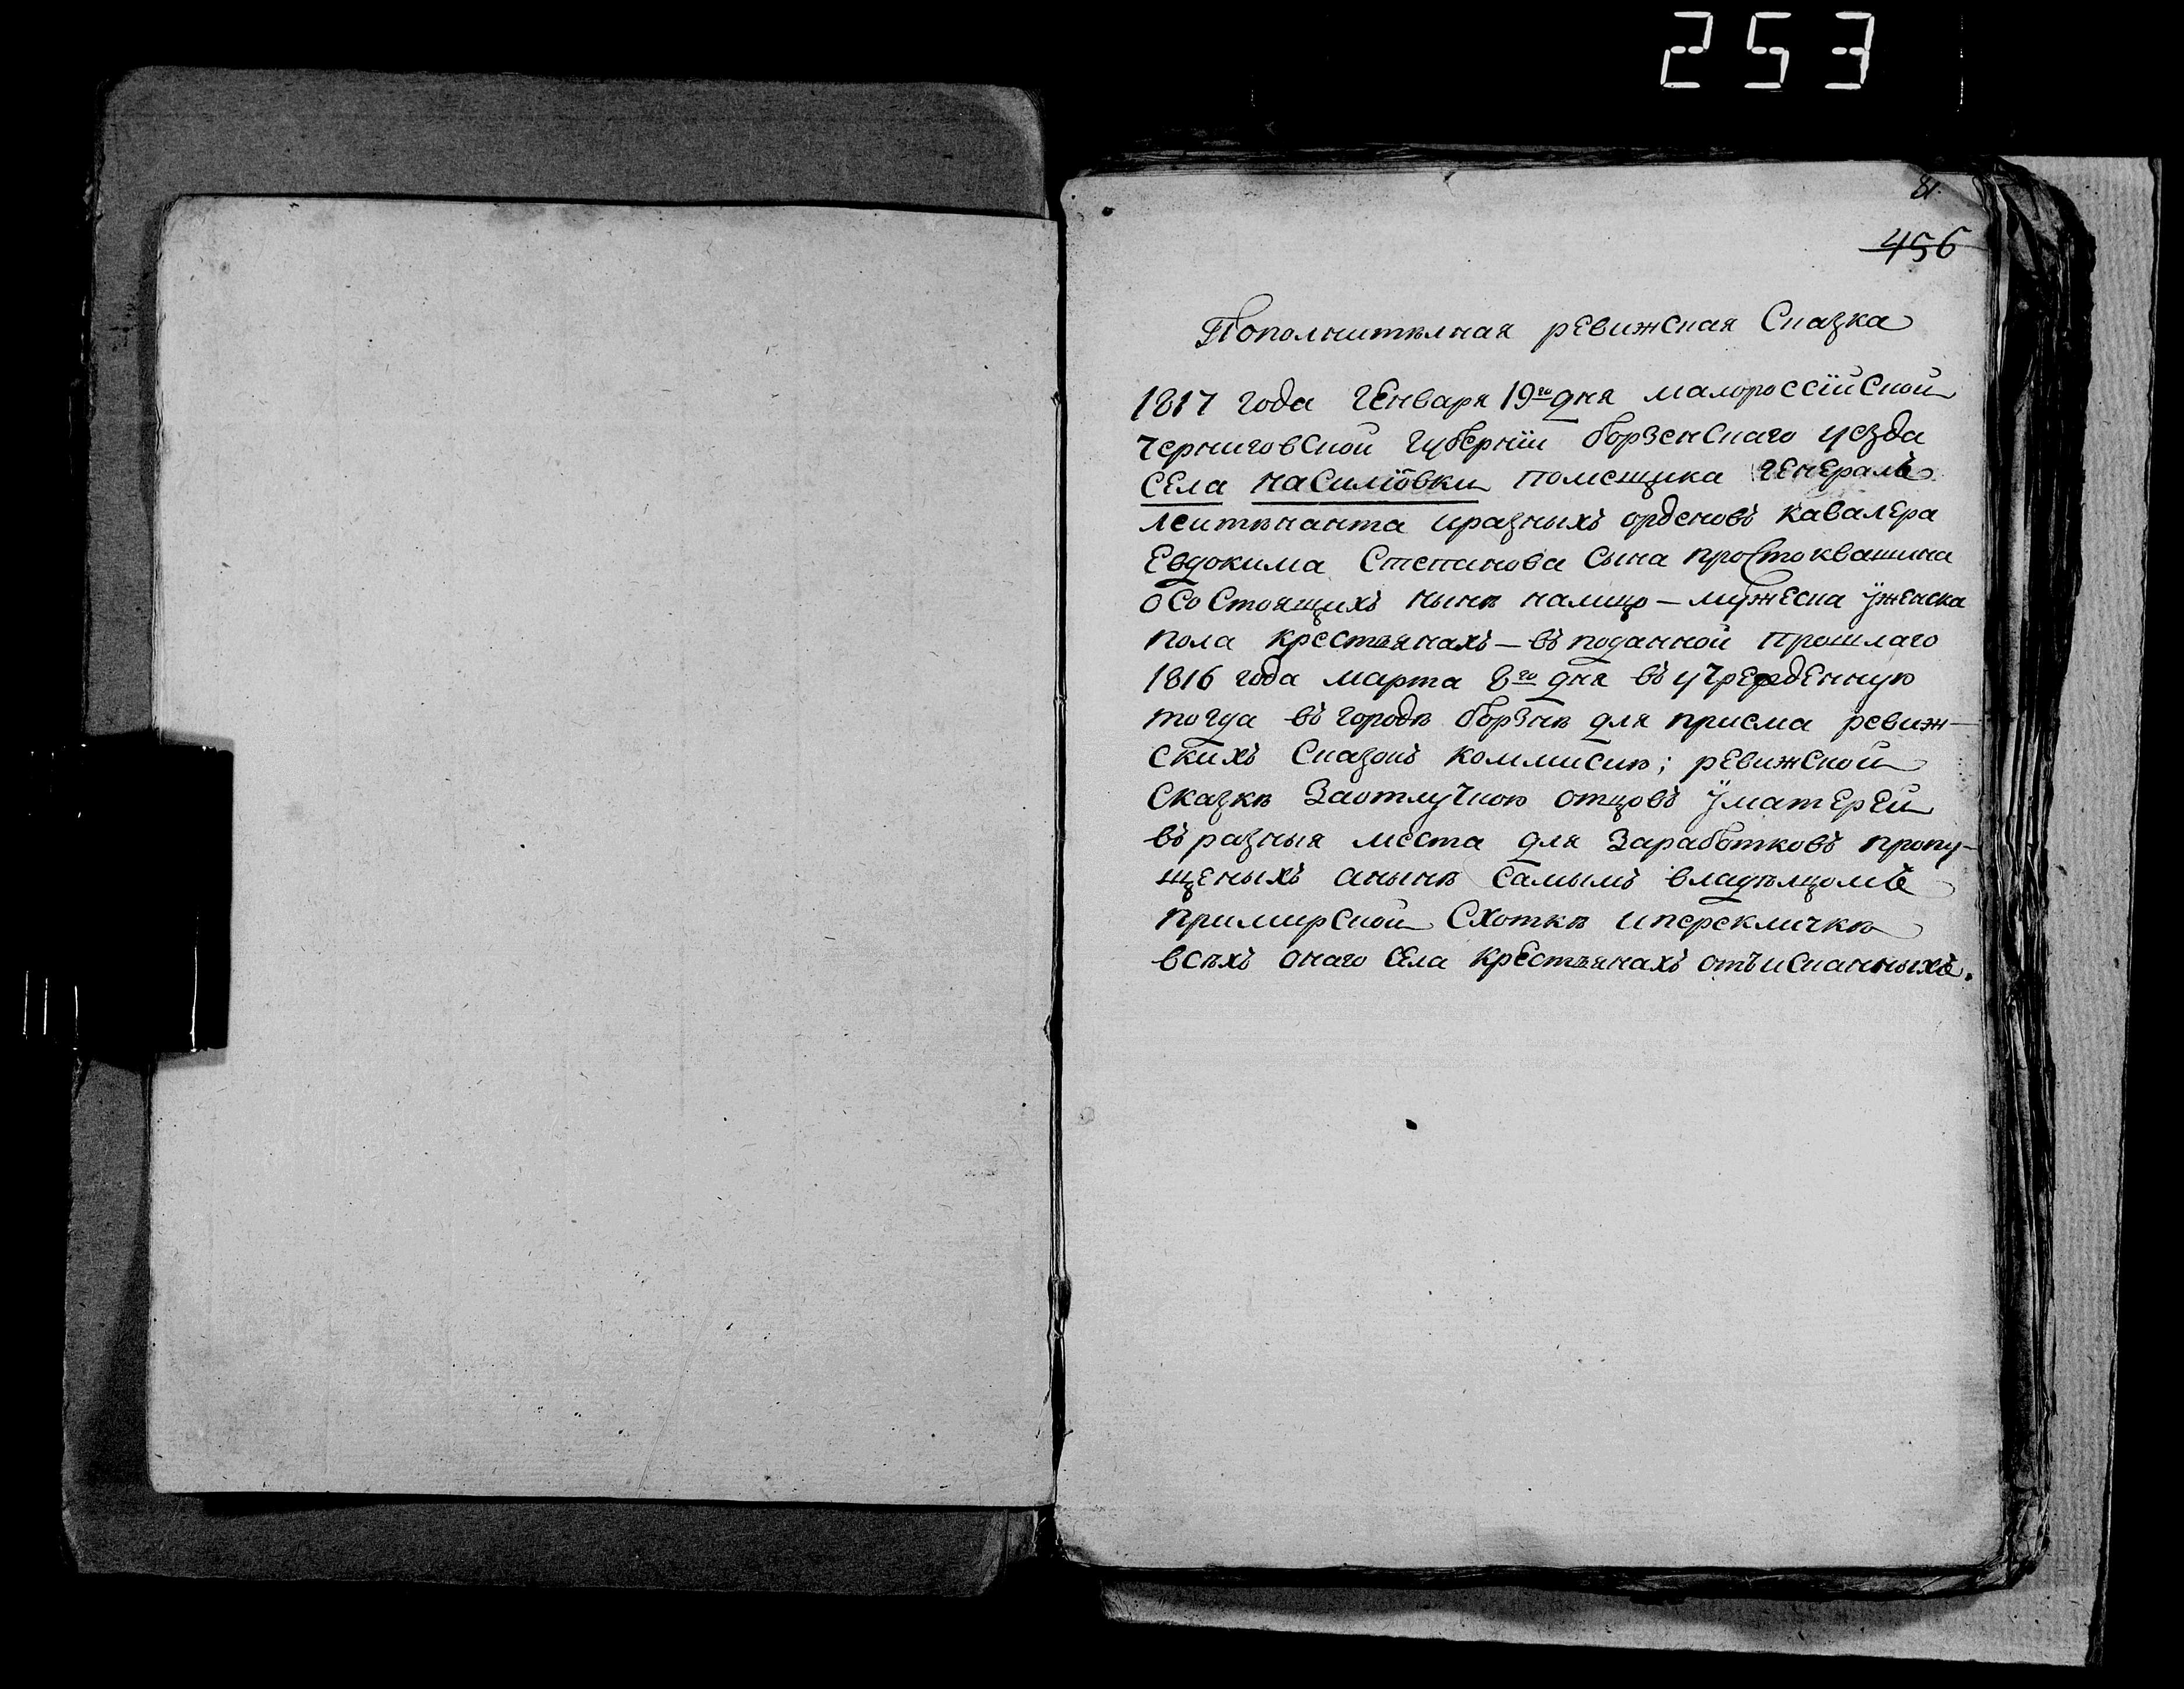 253
81.
456
Пополнителная ревижская Сказка
1817 года Генваря 19го дня малороссїйской
черниговской губернїи борзенскаго уезда
села насиловки помещика генералъ
леитенанта иразныхъ орденовъ кавалера
Евдокима Степанова сына простоквашина
осостоящихъ нынѣ налицо — мужеска ӱженска
пола крестьянахъ — въ поданной прошлаго
1816 года марта 8го дня въ учрежденную
тогда въ городѣ борзнѣ для приема ревиж-
скихъ сказокъ коммисию; ревижской
сказкѣ заотлучкою отцовъ ӱматерей
въ разныя места для заработковъ пропу-
щеныхъ анынѣ самымъ владѣлцомъ
примирской сходкѣ иперекличкѣ
всѣхъ онаго села крестьянахъ отъисканныхъ.